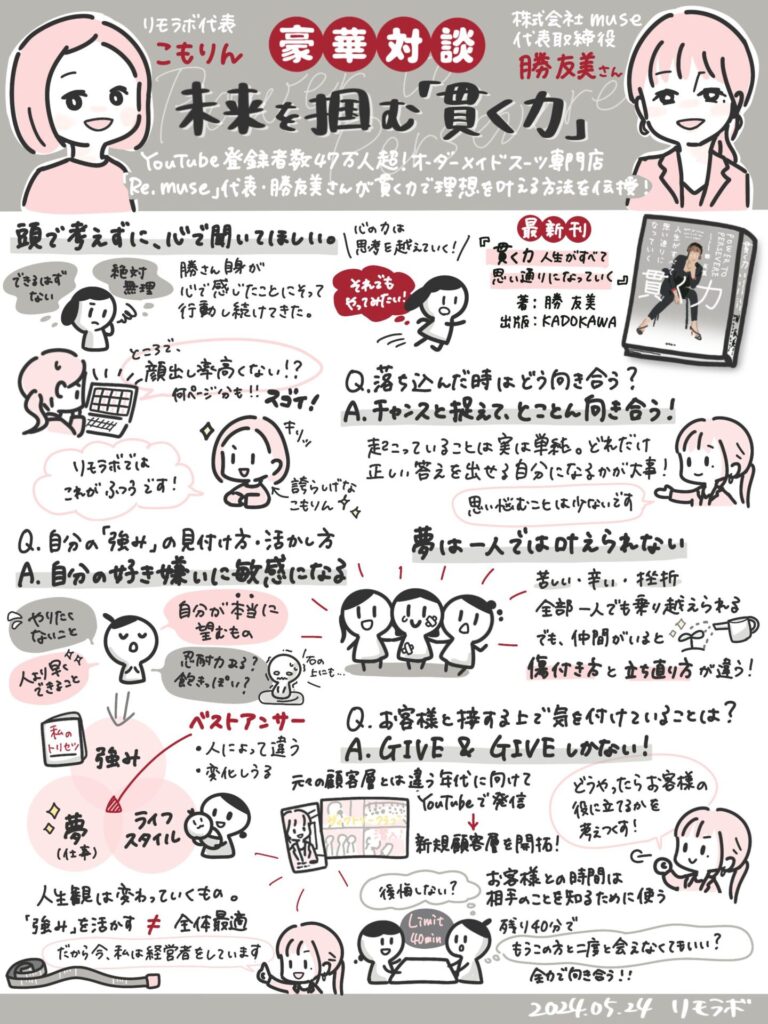 リモラボ代表
こもりん
豪華対談
株式会社muse
代表取締役
勝友美さん
Power to Persevere
未来を掴む「貫く力」
YouTube登録者数47万人超！オーダーメイドスーツ専門店
「Re.muse」代表・勝友美さんが貫く力で理想を叶える方法を伝授！
頭で考えずに、心で聞いてほしい。
できるはずない
絶対無理
勝さん自身が
心で感じたことにそって
行動し続けてきた。
心の力は
思考を越えていく！
それでも
やってみたい！
最新刊
『貫く力 人生がすべて
思い通りになっていく』
著：勝 友美
出版：KADOKAWA
貫く力
人生がすべて
思い通りに
なっていく
POWER TO
PERSEVERE
貫く力
ところで、
顔出し率高くない！？
何ページ分も！！
スゴイ！
リモラボでは
これがふつうです！
キリッ
誇らしげな
こもりん
Q.落ち込んだ時はどう向き合う？
A.チャンスと捉えて、とことん向き合う！
起こっていることは実は単純。どれだけ
正しい答えを出せる自分になるかが大事！
思い悩むことは少ないです
Q.自分の「強み」の見付け方・活かし方
A.自分の好き嫌いに敏感になる
やりたく
ないこと
自分が本当に
望むもの
人より早く
できること
忍耐力ある？
飽きっぽい？
石の
上にも…
私の
トリセツ
強み
夢
(仕事)
ライフ
スタイル
ベストアンサー
・人によって違う
・変化しうる
人生観は変わっていくもの。
「強み」を活かす ≠ 全体最適
だから今、私は経営者をしています
夢は一人では叶えられない
苦しい・辛い・挫折
全部一人でも乗り越えられる
でも、仲間がいると
傷付き方と立ち直り方が違う！
Q.お客様と接する上で気を付けていることは？
A.GIVE & GIVEしかない！
元々の顧客層とは違う年代に向けて
YouTubeで発信
新規顧客層を開拓！
どうやったらお客様の
役に立てるかを
考えつくす！
後悔しない？
Limit
40min
お客様との時間は
相手のことを知るために使う
残り40分で
もうこの方と二度と会えなくてもいい？
全力で向き合う！！
2024.05.24 リモラボ